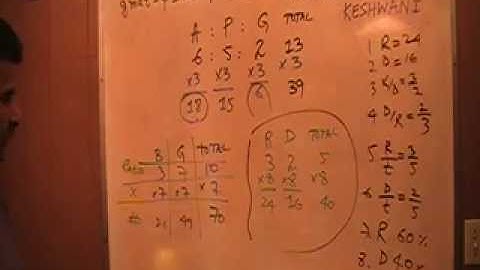 KESHWANI
A : P : G TOTAL
6 : 5 : 2 13
x3 x3 x3 x3
18 15 6 39
B G TOTAL
3 7 10
x x7 x7 x7
21 49 70
R D TOTAL
3 2 5
x8 x8 x8
24 16 40
1 R=24
2 D=16
3 R/D=3/2
4 D/R=2/3
5 R/t=3/5
6 D/t=2/5
7. R 60%
8. D 40%